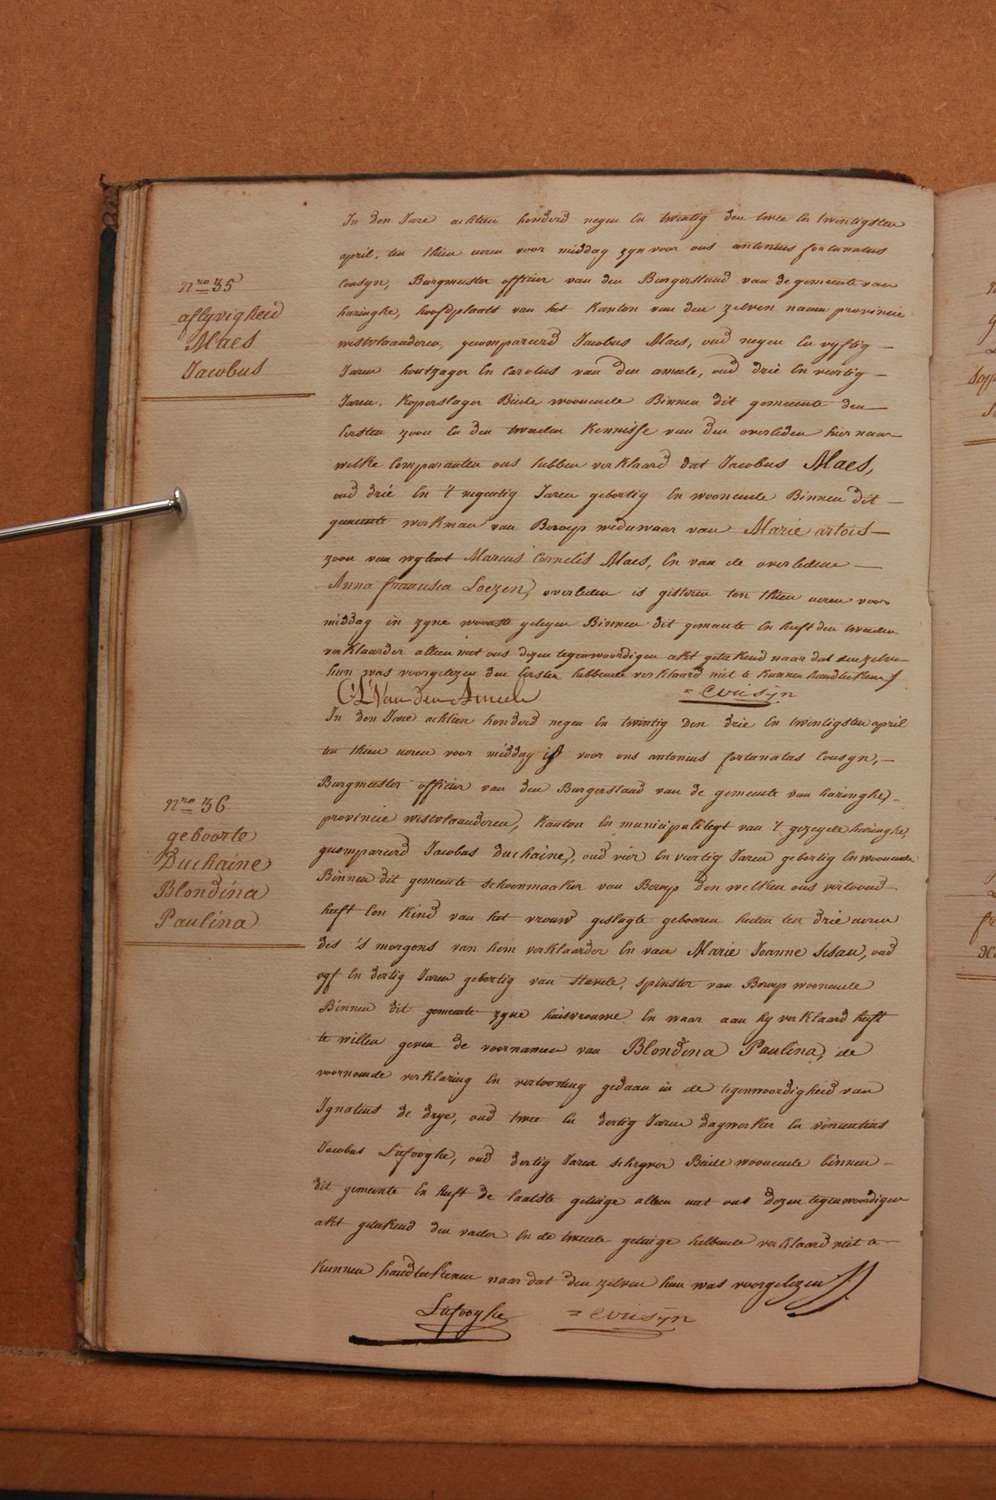 nro 35
aflyvigheid
Maes
Jacobus
In den Jare achtien honderd negen en twintig den twee en twintigsten
april, ten thien uren voor middag zyn voor ons antonius fortunatus
Cousyn, Burgmeester officier van den Burgerstand van de gemeente van
haringhe, hoofdplaats van het Kanton van den zelven naem provincie
westvlaanderen, gecompareerd Jacobus Maes, oud negen en vyftig
Jaren houtzager En Carolus van den ameele, oud drie En veertig
Jaren, Koperslager Beide wooende Binnen dit gemeente den
Eersten zoon En den tweeden Kennisse van den overleden hier naar
welke Comparanten ons hebben verklaard dat Jacobus Maes,
oud drie En 't negentig Jaren gebortig En wooende Binnen dit
gemeente werkman van Beroep weduwaar van Marie artois
zoon van wylent Marcus Cornelis Maes, En van de overledene
Anna francisca Loezen, overleden is gisteren ten thien uren voor
middag in zyne woonste gelegen Binnen dit gemeente En heeft den tweeden
verklaarder alleen met ons dezen tegenwoordigen akt geteekend naar dat den zelven
hun was voorgelezen den Eersten hebbende verklaard niet te kunnen handteekenen
C L Van den Ameele = Cousyn
nro 36
geboorte
Duchaine
Blondina
Paulina
In den Jare achtien honderd negen En twintig Den drie En twintigsten april
ten thien uren voor middag is voor ons antonius fortunatus Cousyn,
Burgmeester officier van den Burgerstand van de gemeente van haringhe,
provincie westvlaanderen, Kanton En municipaliteyt van 't gezegde haringhe,
gecompareerd Jacobus Duchaine, oud vier En veertig Jaren gebortig En wooende
Binnen dit gemeente schoenmaaker van Beroep den welken ons vertoond
heeft Een kind van het vrouw geslagte gebooren heden ten drie uren
des 's morgens van hem verklaarder En van Marie Joanne, oud
vyf En dertig Jaren gebortig van Stavele, spinster van Beroep wooende
Binnen dit gemeente zyne huisvrouwe En waar aan hy verklaard heeft
te willen geven de voornamen van Blondina Paulina, de
voornoemde verklaring En vertooning gedaan in de tegenwoordigheid van
Ignatius de drye, oud twee En dertig Jaren dagwerker En vincentius
Jacobus Lafooghe, oud dertig Jaren schryver Beide wooende binnen
dit gemeente En heeft de laatste getuige alleen met ons dezen tegenwoordigen
akt geteekend den vader En de tweede getuige hebbende verklaard niet te
Kunnen handteekenen naar dat den zelven hun was voorgelezen
Lafooghe = Cousyn